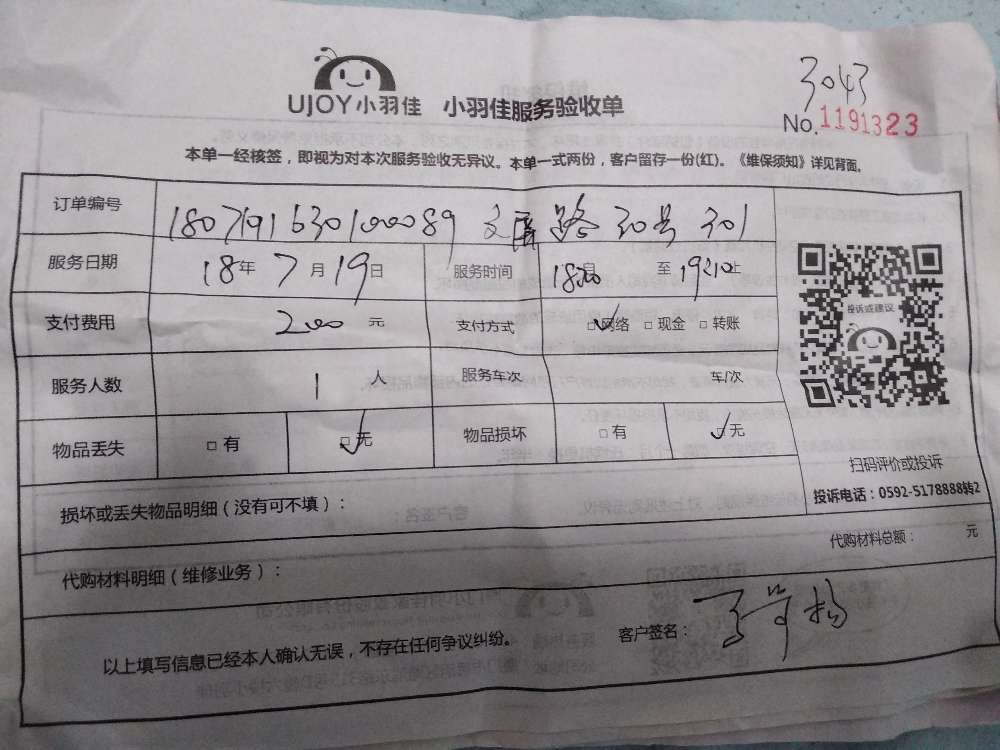 3043
UJOY小羽佳 小羽佳服务验收单
No. 1191323
本单一经核签，即视为对本次服务验收无异议。本单一式两份，客户留存一份(红)。《维保须知》详见背面。
订单编号 18071916301000089 文屏路30号301
服务日期 18年7月19日 服务时间 1820起 至 1920止
支付费用 200元 支付方式 ☑网络 □现金 □转账
投诉或建议
服务人数 1人 服务车次 车/次
物品丢失 □有 ☑无 物品损坏 □有 ☑无
扫码评价或投诉
投诉电话：0592-5178888转2
损坏或丢失物品明细（没有可不填）：
代购材料总额： 元
代购材料明细（维修业务）：
以上填写信息已经本人确认无误，不存在任何争议纠纷。 客户签名：